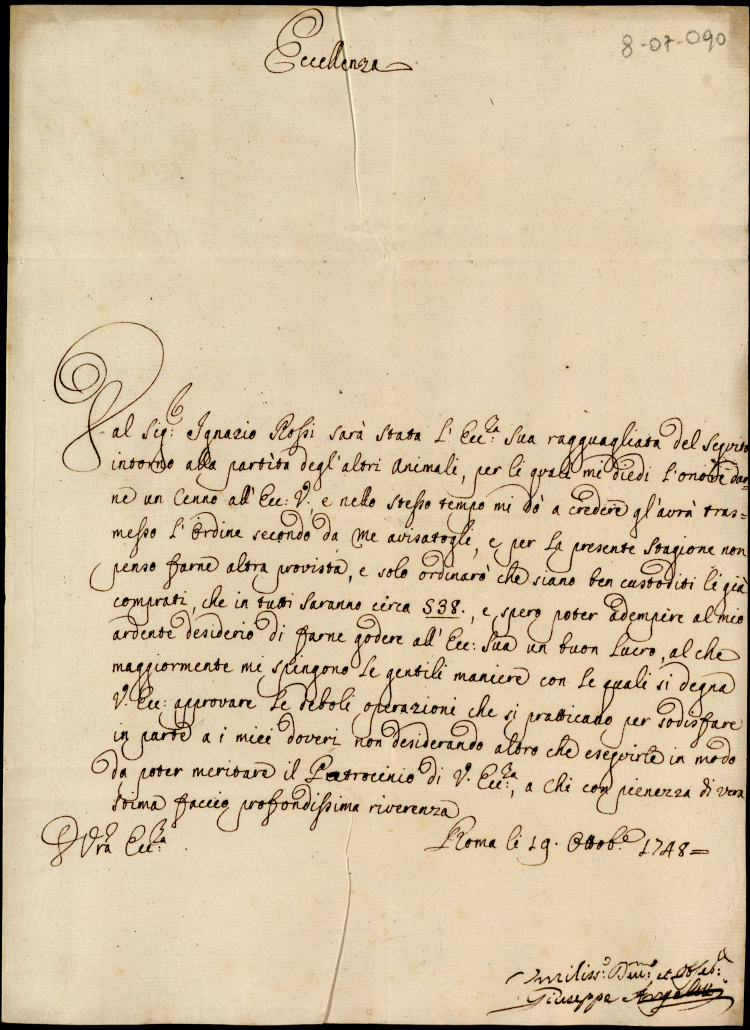 8-07-090
Eccellenza
Dal Sig:r Ignazio Rossi sarà stata l'Ecc:za Sua ragguagliata del seguito
intorno alla partita degl'altri Animali, per li quali mi diedi l'onore dar=
ne un Cenno all'Ecc: V., e nello stesso tempo mi dò a credere gl'avrà tras=
messo l'Ordine secondo da me avisatogli, e per la presente stagione non
penso farne altra provista, e solo ordinarò che siano ben custoditi li già
comprati, che in tutti saranno circa 538., e spero poter adempire al mio
ardente desiderio di farne godere all'Ecc: Sua un buon Lucro, al che
maggiormente mi spingono le gentili maniere con le quali si degna
V. Ecc: approvare le deboli operazioni che si pratticano per sodisfare
in parte a i miei doveri non desiderando altro che eseguirle in modo
da poter meritare il Patrocinio di V. Ecc:za, a chi con pienezza di vera
stima faccio profondissima riverenza
D Vra Ecc:za
Roma li 19. Ottob:e 1748=
Umiliss:o Dev:mo et Obb:
Giuseppe Angeletti